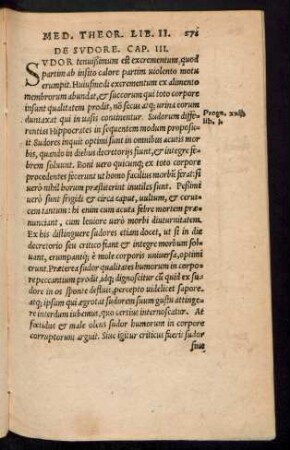 MED. THEOR. LIB. II. 271
DE SVDORE. CAP. III.
SVDOR tenuissimum est excrementum, quod
partim ab insito calore partim uiolento motu
erumpit. Huiusmodi excrementum ex alimento
membrorum abundat, & succorum qui toto corpore
insunt qualitatem prodit, nõ secus atq; urina eorum
duntaxat qui in uasis continentur. Sudorum diffe-
rentias Hippocrates in sequentem modum proposu-
it Sudores inquit optimi sunt in omnibus acutis mor
bis, quando in diebus decretorijs fiunt, & integre fe
brem soluunt. Boni uero quicunq; ex toto corpore
procedentes fecerunt ut homo facilius morbũ ferat: si
uerò nihil horum præstiterint inutiles sunt. Pessimi
uerò sunt frigidi & circa caput, uultum, & ceruı-
cem tantum: hi enim cum acuta febre mortem præ-
nunciant, cum leuiore uerò morbi diuturnitatem.
Ex his distinguere sudores etiam docet, ut si in die
decretorio seu critico fiant & integre morbum sol-
uant, erumpantq; è mole corporis uniuersa, optimi
erunt. Præterea sudor qualitates humorum in corpo-
re peccantium prodit, idq; dignoscitur cũ quid ex su
dore in os sponte defluit, percepto uidelicet sapore.
atq; ipsum qui ægrotat sudorem suum gustu attinge-
re interdum iubemus, quo certius internoscatur. At
fœtidus & male olens sudor humorum in corpore
corruptorum arguit. Siue igitur criticus fuerit sudor
siue
Progn. xxiij.
lib. j.